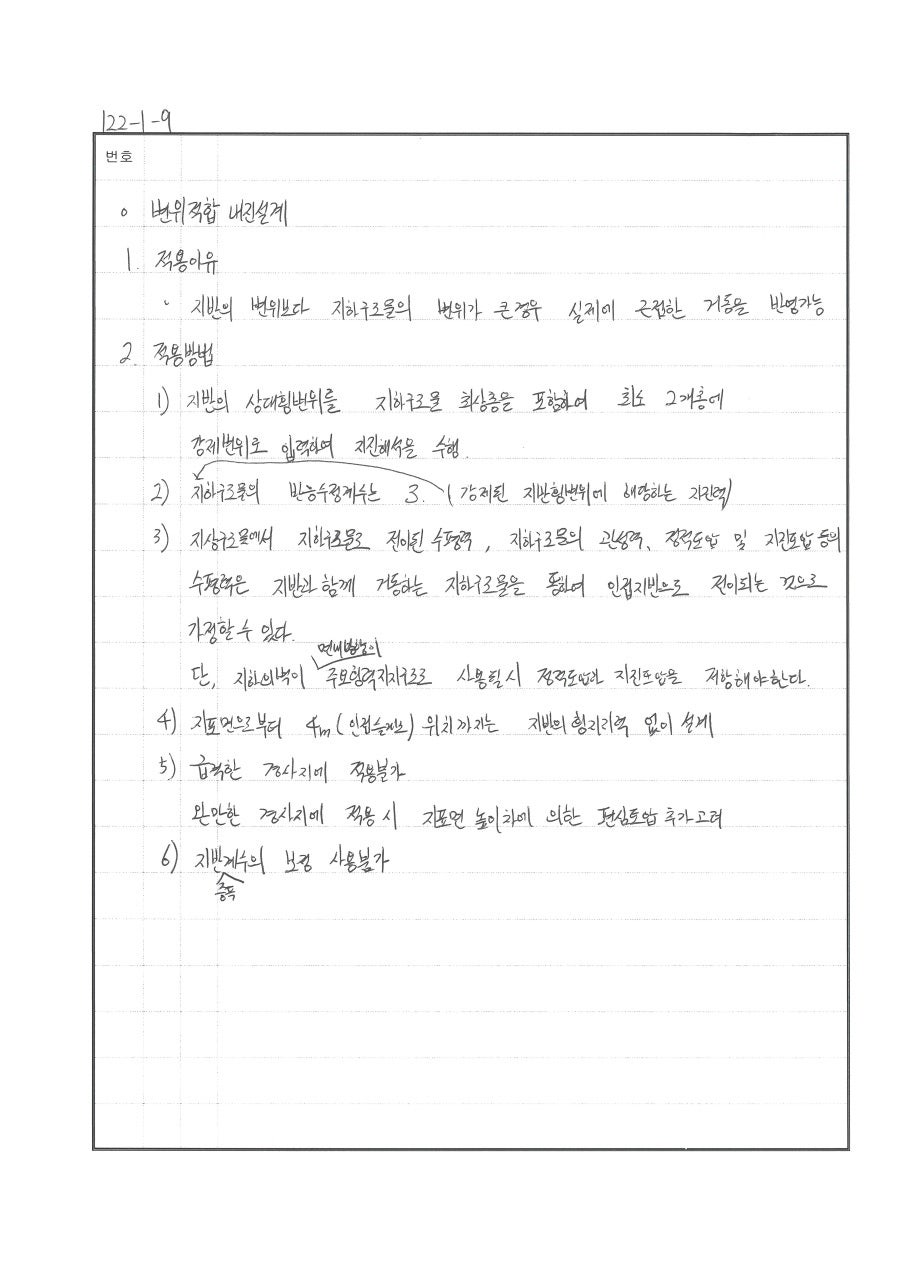 122-1-9
번호
o 변위적합 내진설계
1. 적용이유
• 지반의 변위보다 지하구조물의 변위가 큰경우 실제에 근접한 거동을 반영가능
2. 적용방법
1) 지반의 상대횡변위를 지하구조물 최상층을 포함하여 최소 2개층에
강제변위로 입력하여 지진해석을 수행.
2) 지하구조물의 반응수정계수는 3. (강제된 지반횡변위에 해당하는 지진력)
3) 지상구조물에서 지하구조물로 전이된 수평력, 지하구조물의 관성력, 정적토압 및 지진토압 등의
수평력은 지반과 함께 거동하는 지하구조물을 통하여 인접지반으로 전이되는 것으로
가정할 수 있다.
면내방향이
단, 지하외벽이 주요횡력저항구조로 사용될시 정적토압과 지진토압을 저항해야한다.
4) 지표면으로부터 4m (인접슬래브) 위치까지는 지반의 횡지지력 없이 설계
5) 급격한 경사지에 적용불가
완만한 경사지에 적용 시 지표면 높이차에 의한 편심토압 추가고려
6) 지반계수의 보정 사용불가
증폭